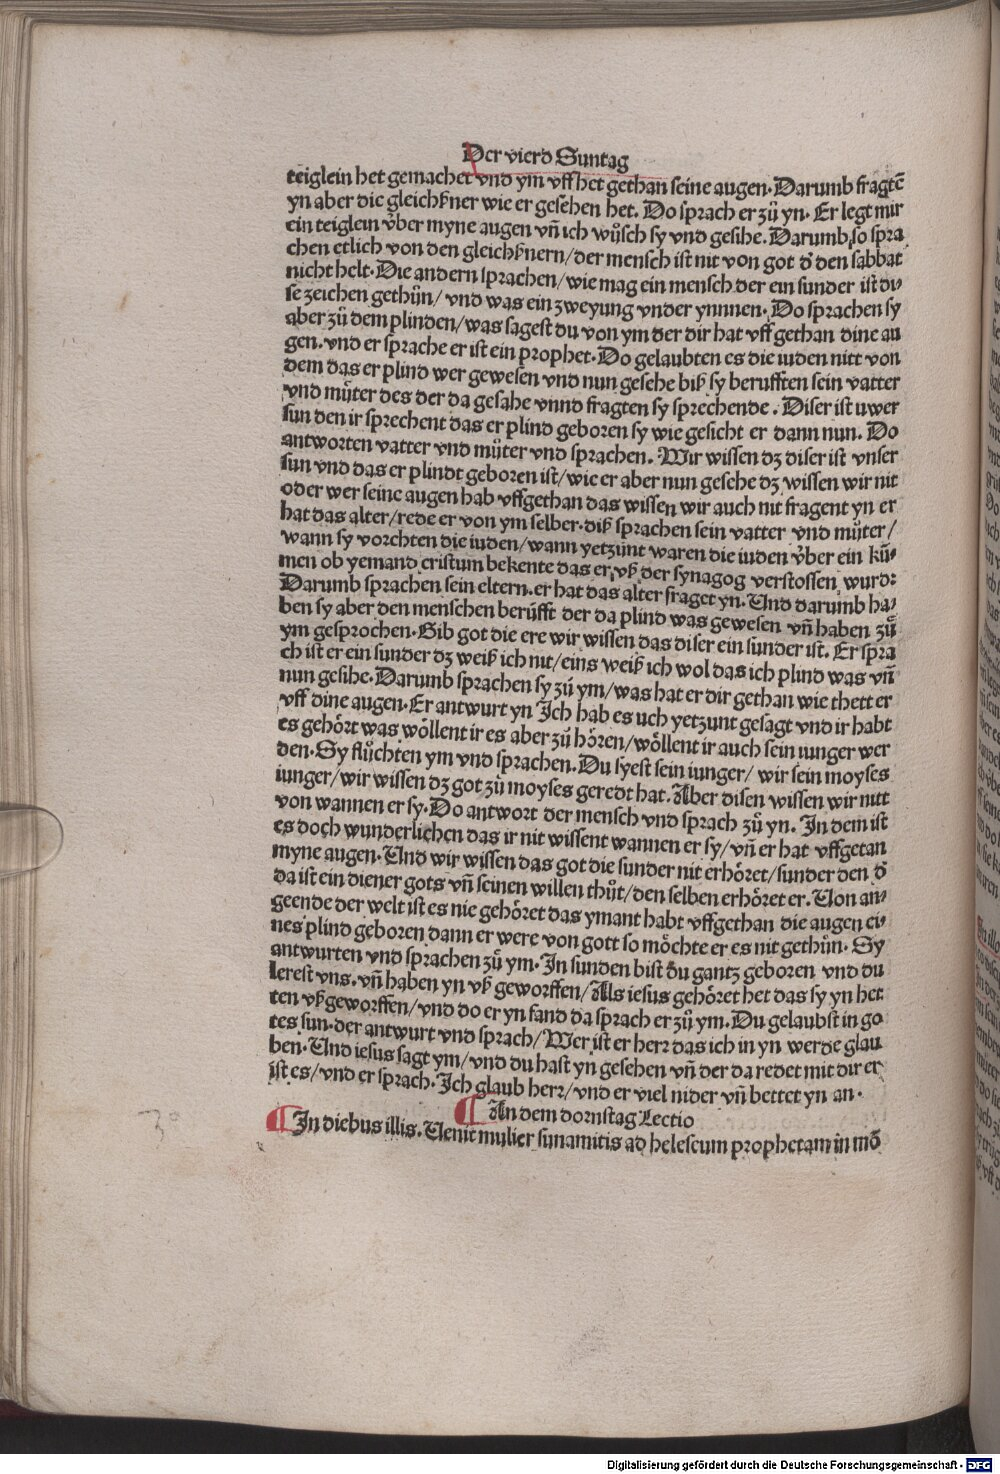 Der vierd Suntag
teiglein het gemachet vnd ym vff het gethan seine augen. Darumb fragtē
yn aber die gleichßner wie er gesehen het. Do sprach er zů yn. Er legt mir
ein teiglein v̊ber myne augen vñ ich wůsch sy vnd gesihe. Darumb so spra
chen etlich von den gleichßnern/der mensch ist nit von got d̕ den sabbat
nicht helt. Die andern sprachen/wie mag ein mensch der ein sunder ist di⸗
se zeichen gethůn/ vnd was ein zweyung vnder ynnnen. Do sprachen sy
aber zů dem plinden/was sagest du von ym der dir hat vff gethan dine au
gen. vnd er sprache er ist ein prophet. Do gelaubten es die iuden nitt von
dem das er plind wer gewesen vnd nun gesehe biß sy berufften sein vatter
vnd můter des der da gesahe vnnd fragten sy sprechende. Diser ist uwer
sun den ir sprechent das er plind geboren sy wie gesicht er dann nun. Do
antworten vatter vnd můter vnd sprachen. Wir wissen dz diser ist vnser
sun vnd das er plindt geboren ist/wie er aber nun gesehe dz wissen wir nit
oder wer seine augen hab vffgethan das wissen wir auch nit fragent yn er
hat das alter/rede er von ym selber. diß sprachen sein vatter vnd můter/
wann sy vorchten die iuden/wann yetzunt waren die iuden v̊ber ein kū⸗
men ob yemand cristum bekente das er vß der synagog verstossen wurd:
Darumb sprachen sein eltern. er hat das alter fraget yn. Und darumb ha⸗
ben sy aber den menschen berůfft der da plind was gewesen vñ haben zů
ym gesprochen. Gib got die ere wir wissen das diser ein sunder ist. Er spra
ch ist er ein sunder dz weiß ich nit/eins weiß ich wol das ich plind was vñ
nun gesihe. Darumb sprachen sy zů ym/was hat er dir gethan wie thett er
vff dine augen. Er antwurt yn Ich hab es uch yetzunt gesagt vnd ir habt
es gehört was wöllent ir es aber zů hören/wöllent ir auch sein iunger wer
den. Sy flůchten ym vnd sprachen. Du syest sein iunger/ wir sein moyses
iunger/wir wissen dz got zů moyses geredt hat. Aber disen wissen wir nitt
von wannen er sy. Do antwort der mensch vnd sprach zů yn. In dem ist
es doch wunderlichen das ir nit wissent wannen er sy/vñ er hat vffgetan
myne augen. Und wir wissen das got die sunder nit erhöret/sunder den d̕
da ist ein diener gots vñ seinen willen thůt/den selben erhöret er. Von an⸗
geende der welt ist es nie gehöret das ymant habt vffgethan die augen ei⸗
nes plind geboren dann er were von gott so möchte er es nit gethůn. Sy
antwurten vnd sprachen zů ym. In sunden bist du gantz geboren vnd du
lerest vns. vñ haben yn vß geworffen/Als iesus gehöret het das sy yn het
ten vßgeworffen/vnd do er yn fand da sprach er zů ym. Du gelaubst in go
tes sun. der antwurt vnd sprach/Wer ist er herz das ich in yn werde glau
ben. Und iesus sagt ym/vnd du hast yn gesehen vñ der da redet mit dir er
ist es/vnd er sprach. Ich glaub herz/vnd er viel nider vñ bettet yn an.
¶ An dem dornstag Lectio
¶ In diebus illis. Venit mulier sunamitis ad heleseum prophetam in mō
30
Digitalisierung gefördert durch die Deutsche Forschungsgemeinschaft - DFG